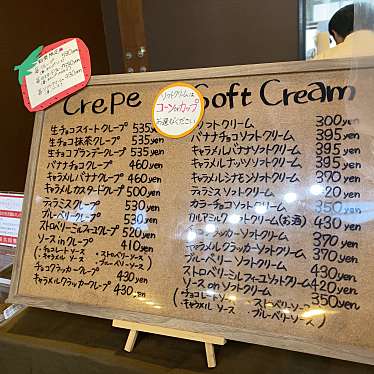 Crepe
生チョコスイートクレープ 535 yen
生チョコ抹茶クレープ 535 yen
生チョコブランデークレープ 535 yen
バナナチョコクレープ 460 yen
キャラメルバナナクレープ 460 yen
キャラメルカスタードクレープ 500 yen
ティラミスクレープ 530 yen
ブルーベリークレープ 530 yen
ストロベリーミルフィーユクレープ 520 yen
ソース in クレープ 410 yen
(・チョコソース ・ストロベリーソース
・キャラメルソース ・ブルーベリーソース)
チョコクラッカークレープ 430 yen
キャラメルクラッカークレープ 430 yen
ソフトクリームは
コーンorカップ
お選びください
Soft Cream
ソフトクリーム 300 yen
バナナチョコソフトクリーム 395 yen
キャラメルバナナソフトクリーム 395 yen
キャラメルナッツソフトクリーム 395 yen
キャラメルシナモンソフトクリーム 370 yen
ティラミスソフトクリーム
カラーチョコソフトクリーム 350 yen
カルアミルクソフトクリーム(お酒) 430 yen
クラッカーソフトクリーム 370 yen
キャラメルクラッカーソフトクリーム 370 yen
ブルーベリーソフトクリーム 430 yen
ストロベリーミルフィーユソフトクリーム 420 yen
ソース on ソフトクリーム 350 yen
(・チョコレートソース ・ストロベリーソース
・キャラメルソース ・ブルーベリーソース)